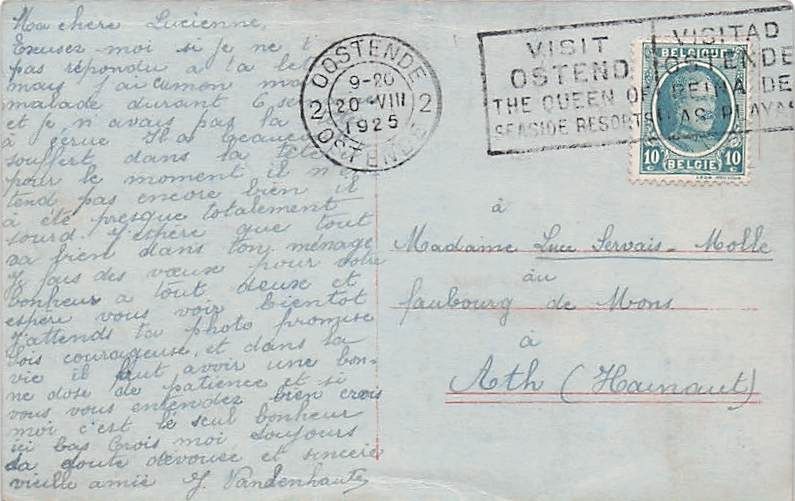 Ma chere Lucienne,
Excusez-moi si je ne t'
pas répondu a ta let
mais j'ai eu mon ma
malade durant 6 se
et je n'avais pas la
à écrire Il a beauc
souffert dans la tête
pour le moment il n'e
tend pas encore bien il
à été presque totalement
sourd. J'éspère que tout
va bien dans ton ménage
Je fais des vœux pour votre
bonheur a tout deux et
espère vous voir bientot
J'attends ta photo promise
Sois courageuse, et dans la
vie il faut avoir une bon-
ne dose de patience et si
vous vous entendez bien crois
moi c'est le seul bonheur
ici bas Crois moi toujours
ta toute dévouée et sincère
vieille amie J. Vandenhaute
OOSTENDE
9-20
2 20 VIII 2
1925
OOSTENDE
VISIT
OSTEND
THE QUEEN OF
SEASIDE RESORTS
VISITAD
OSTENDE
REINA DE
LAS PLAYAS
BELGIQUE
10 BELGIE 10
à
Madame Luc Servais-Molle
au
faubourg de Mons
à
Ath (Hainaut)